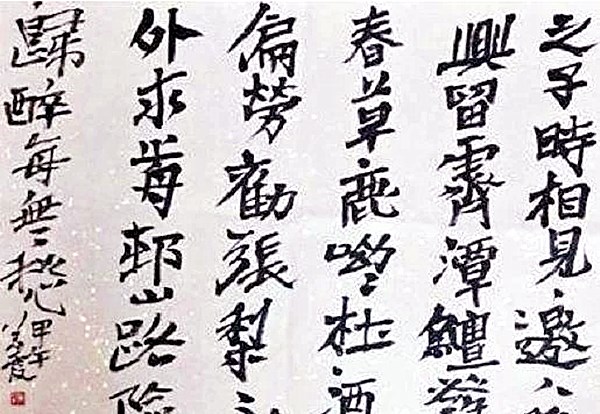 之子時相見邀人
興留霽潭鱣發
春草鹿呦々杜酒
偏勞勸張梨
外求前邨山路險
歸醉每無愁 甲午